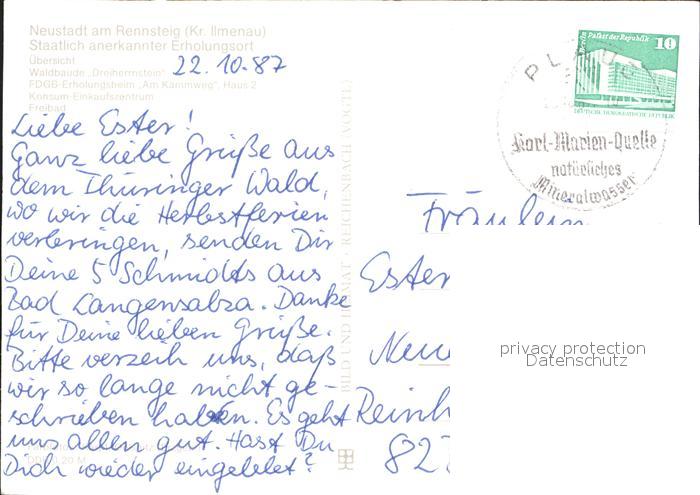 Neustadt am Rennsteig (Kr. Ilmenau)
Staatlich anerkannter Erholungsort
Übersicht
Waldbaude „Dreiherrnstein"
FDGB-Erholungsheim „Am Kammweg", Haus 2
Konsum-Einkaufszentrum
Freibad
22.10.87
Liebe Ester!
Ganz liebe Grüße aus
dem Thüringer Wald,
wo wir die Herbstferien
verbringen, senden Dir
Deine 5 Schmidts aus
Bad Langensalza. Danke
für Deine lieben Grüße.
Bitte verzeih uns, daß
wir so lange nicht ge-
schrieben haben. Es geht
uns allen gut. Hast Du
Dich wieder eingelebt?
BILD UND HEIMAT · REICHENBACH (VOGTL)
Berlin Palast der Republik
10
DEUTSCHE DEMOKRATISCHE REPUBLIK
PLAUE
Karl-Marien-Quelle
natürliches
Mineralwasser
Fräulein
Ester
Neu
Reinh
827
privacy protection
Datenschutz